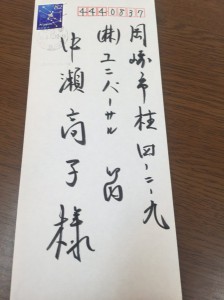 4440837
岡崎市柱四-二-九
(株)ユニバーサル 苅
中瀬高子様